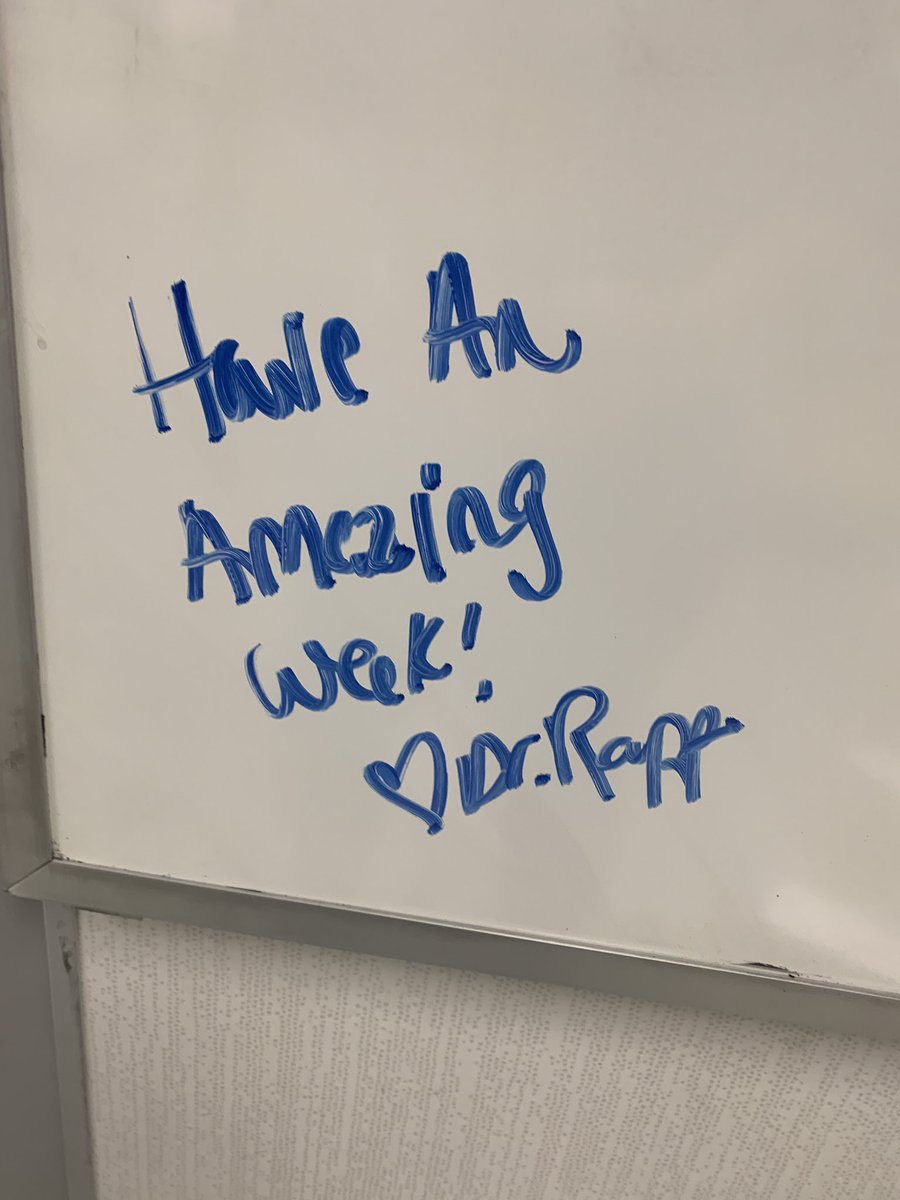 Have An
Amazing
Week!
♡ Dr. Rapp